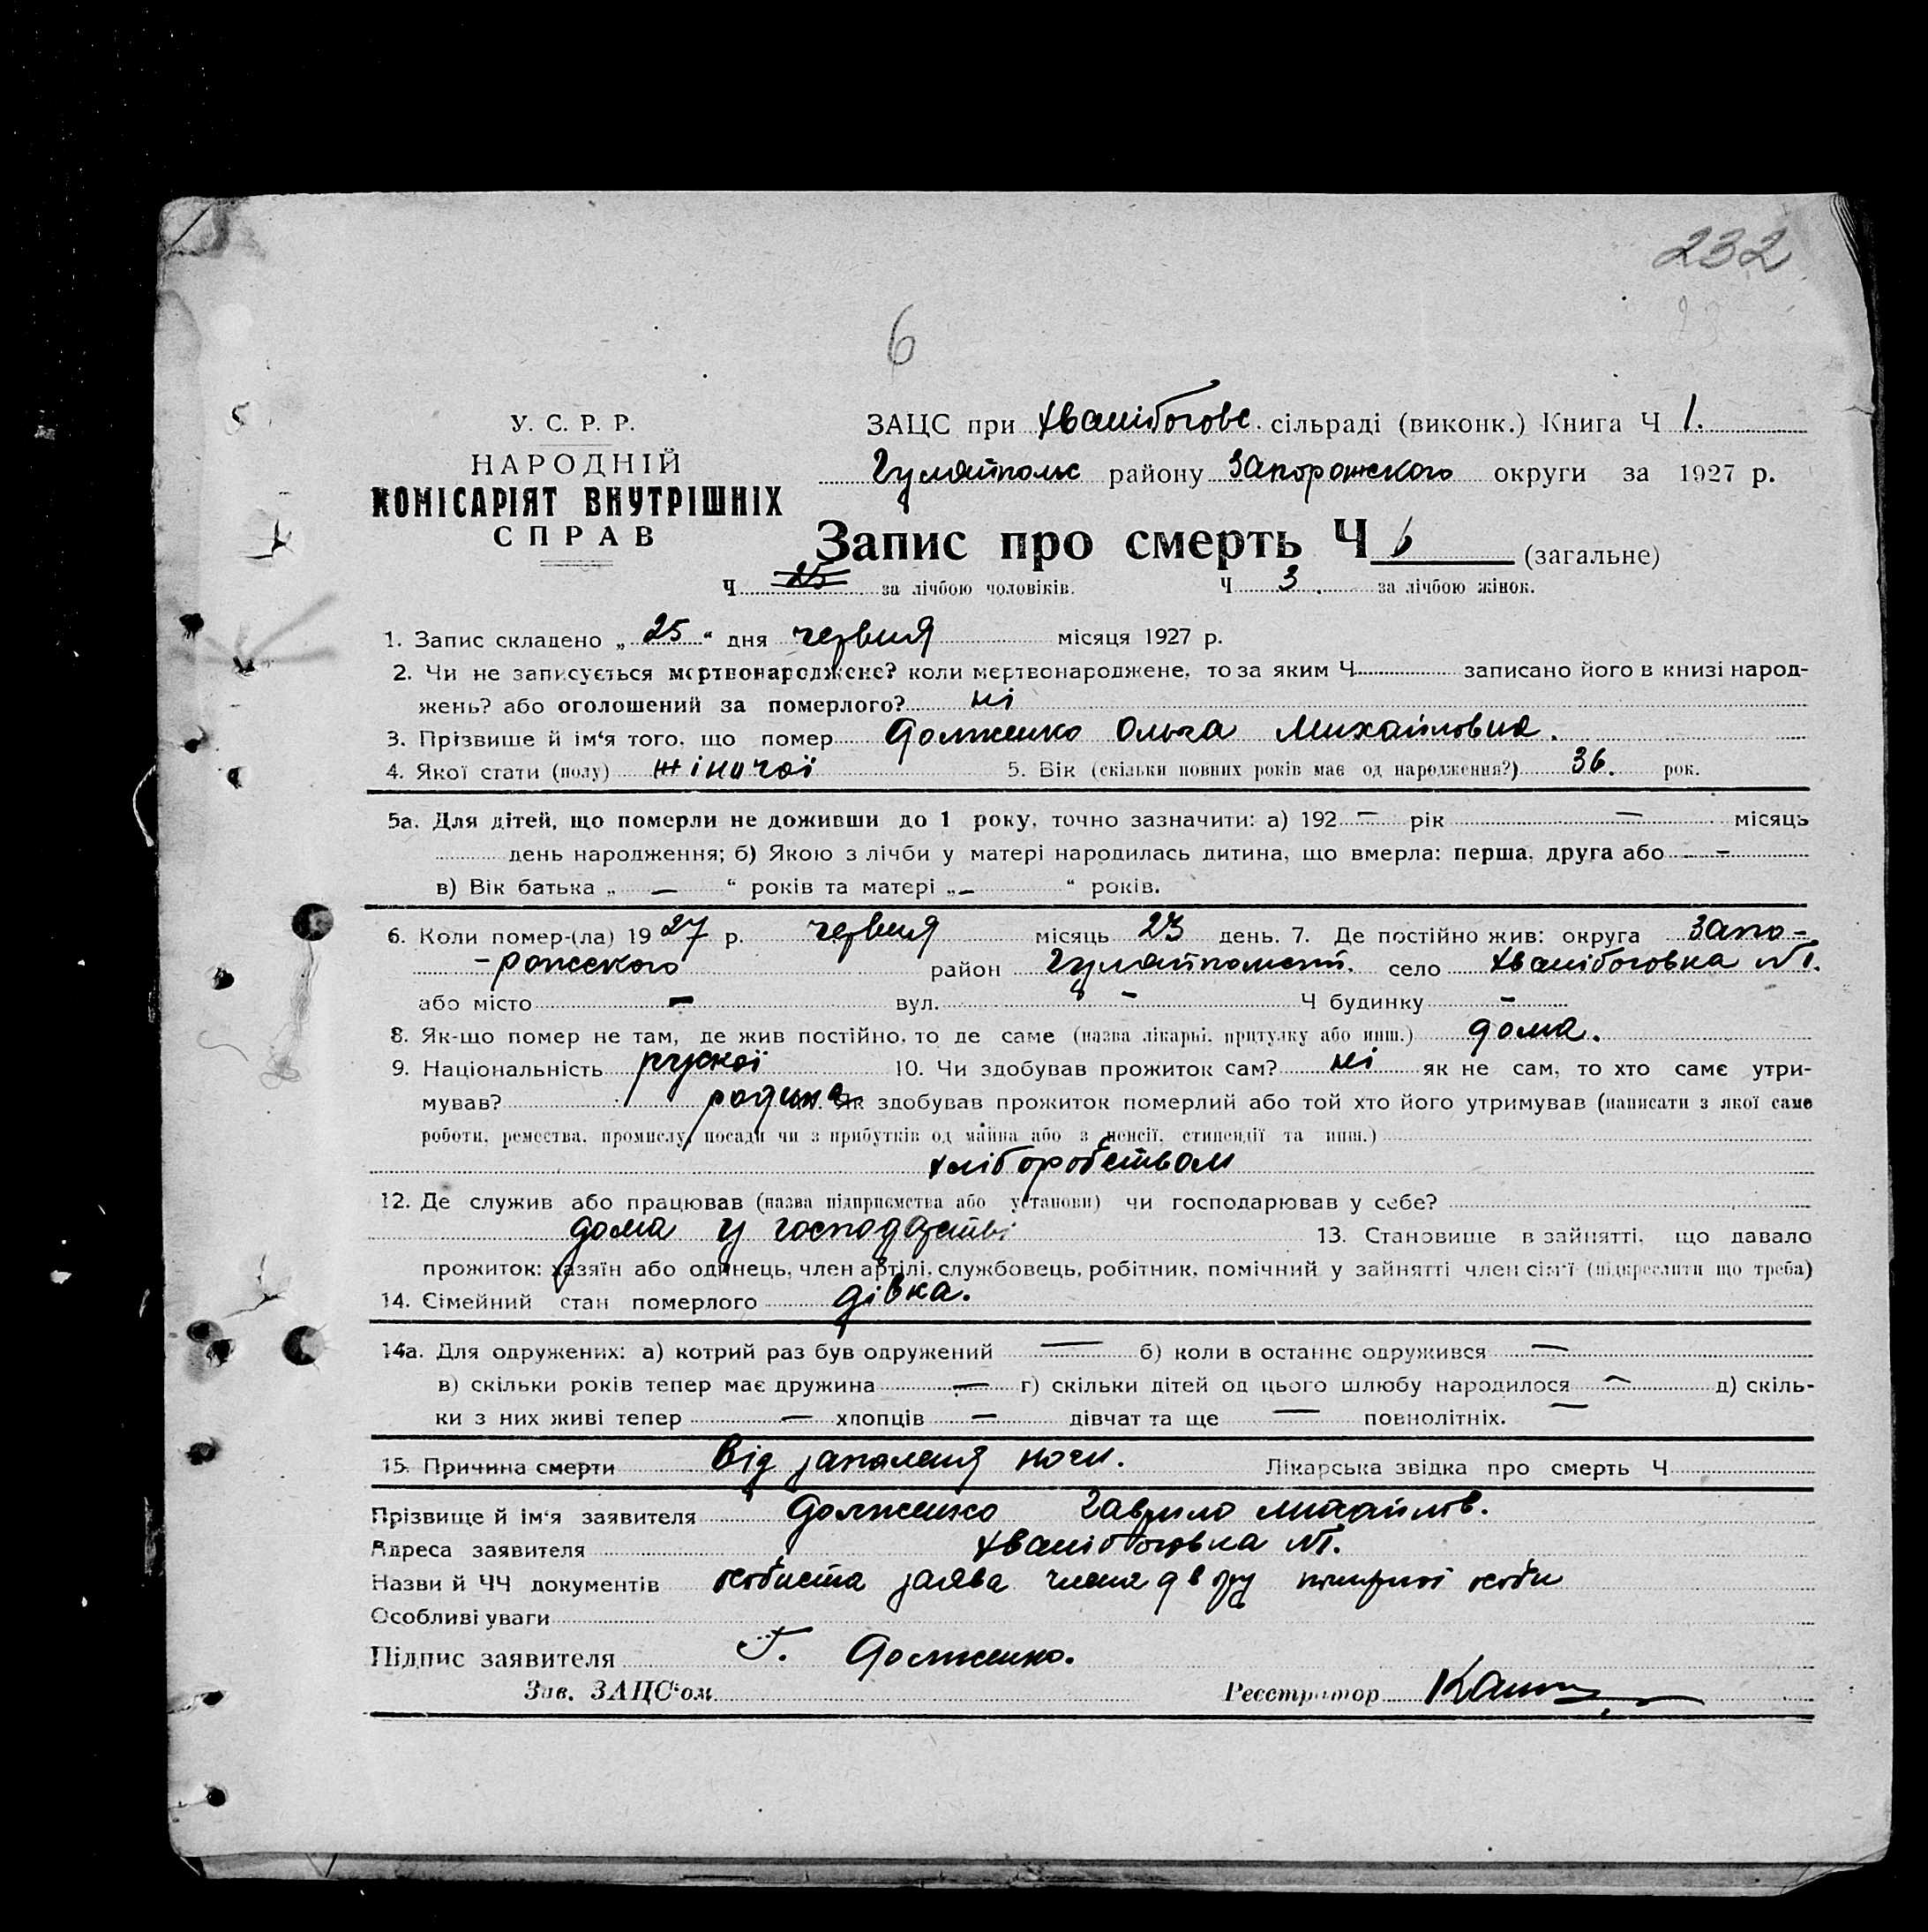 232
6
У. С. Р. Р.
НАРОДНІЙ
КОМІСАРІЯТ ВНУТРІШНІХ
СПРАВ
ЗАЦС при Хвалібогове. сільраді (виконк.) Книга Ч 1.
Гуляйпольс району Запорожского округи за 1927 р.
Запис про смерть Ч 6 (загальне)
Ч 25 за лічбою чоловіків. Ч 3. за лічбою жінок.
1. Запис складено „ 25 “ дня червня місяця 1927 р.
2. Чи не записується мертвонароджене? коли мертвонароджене, то за яким Ч записано його в книзі народ-
жень? або оголошений за померлого? ні
3. Прізвише й ім‘я того, що помер Долженко Ольга Михайловна.
4. Якої стати (полу) жіночої 5. Вік (скільки повних років має од народження?) 36. рок.
5а. Для дітей, що померли не доживши до 1 року, точно зазначити: а) 192 — рік — місяць
день народження; б) Якою з лічби у матері народилась дитина, що вмерла: перша, друга або —
в) Вік батька „ — “ років та матері „ — “ років.
6. Коли помер-(ла) 1927 р. червня місяць 23 день. 7. Де постійно жив: округа Запо-
-рожского район Гуляйпольський. село Хвалібоговка №1.
або місто — вул. — Ч будинку —
8. Як-що помер не там, де жив постійно, то де саме (назва лікарні, притулку або инш.) дома.
9. Національність руської 10. Чи здобував прожиток сам? ні як не сам, то хто саме утри-
мував? родина. Як здобував прожиток померлий або той хто його утримував (написати з якої саме
роботи, ремества, промислу, посади чи з прибутків од майна або з пенсії, стипендії та инш.)
хліборобством
12. Де служив або працював (назва підприємства або установи) чи господарював у себе?
дома у господарстві 13. Становище в зайнятті, що давало
прожиток: хазяїн або одинець, член артілі, службовець, робітник, помічний у зайнятті член сім‘ї (підкреслити що треба)
14. Сімейний стан померлого дівка.
14а. Для одружених: а) котрий раз був одружений — б) коли в останнє одружився —
в) скільки років тепер має дружина — г) скільки дітей од цього шлюбу народилося — д) скіль-
ки з них живі тепер — хлопців — дівчат та ще — повнолітніх. —
15. Причина смерти Від запаленя ноги. Лікарська звідка про смерть Ч
Прізвище й ім‘я заявителя Долженко Гаврило Михайлов.
Адреса заявителя Хвалібоговка №1.
Назви й ЧЧ документів особиста заява члена двору помершої особи
Особливі уваги
Підпис заявителя Г. Долженко.
Зав. ЗАЦС‘ом Реєстратор